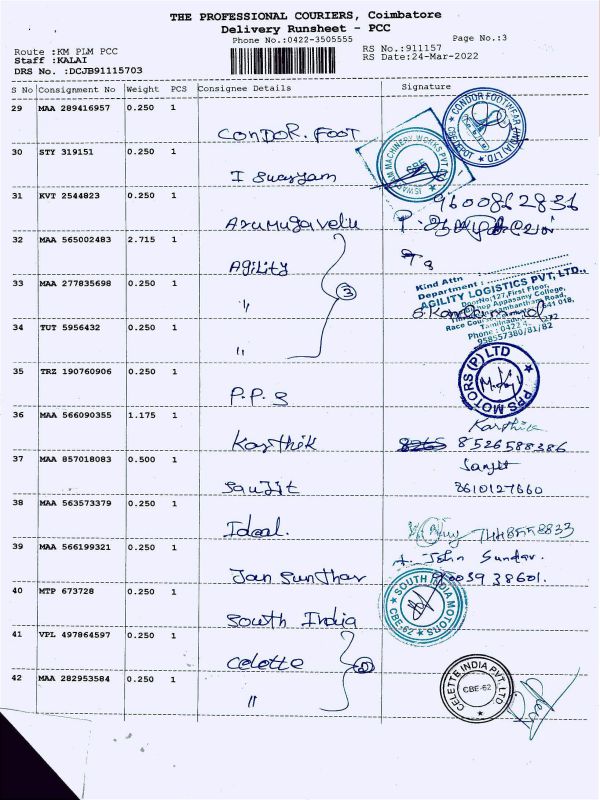 THE PROFESSIONAL COURIERS, Coimbatore
Delivery Runsheet - PCC
Phone No.:0422-3505555
Page No.:3
Route :KM PLM PCC
RS No.:911157
Staff :KALAI
RS Date:24-Mar-2022
DRS No. :DCJB91115703
S No Consignment No Weight PCS Consignee Details Signature
29 MAA 289416957 0.250 1 Condor. Foot
CONDOR FOOTWEAR (INDIA) LTD
CBE DEPOT
30 STY 319151 0.250 1 I Swaryam
MACHINERY WORKS PVT
CBE
31 KVT 2544823 0.250 1 Arumugavelu
9600862836
32 MAA 565002483 2.715 1 Agility
33 MAA 277835698 0.250 1 "
3
Kind Attn
Department :
AGILITY LOGISTICS PVT, LTD.,
Door No:127,First Floor,
Appasamy College,
Race Course
Phone : 0422
958557380/81/82
34 TUT 5956432 0.250 1 "
35 TRZ 190760906 0.250 1 P.P.S
PPS MOTORS (P) LTD
36 MAA 566090355 1.175 1 Karthik
Karthik
8526588386
37 MAA 857018083 0.500 1 Saujit
Sanjit
8610127660
38 MAA 563573379 0.250 1 Ideal.
7448558833
39 MAA 566199321 0.250 1 Jan Sunthar
John Sundar.
40 MTP 673728 0.250 1 South India
SOUTH INDIA MOTORS
CBE-62
41 VPL 497864597 0.250 1 Celotte
2
42 MAA 282953584 0.250 1 "
CELETTE INDIA PVT. LTD
CBE-62